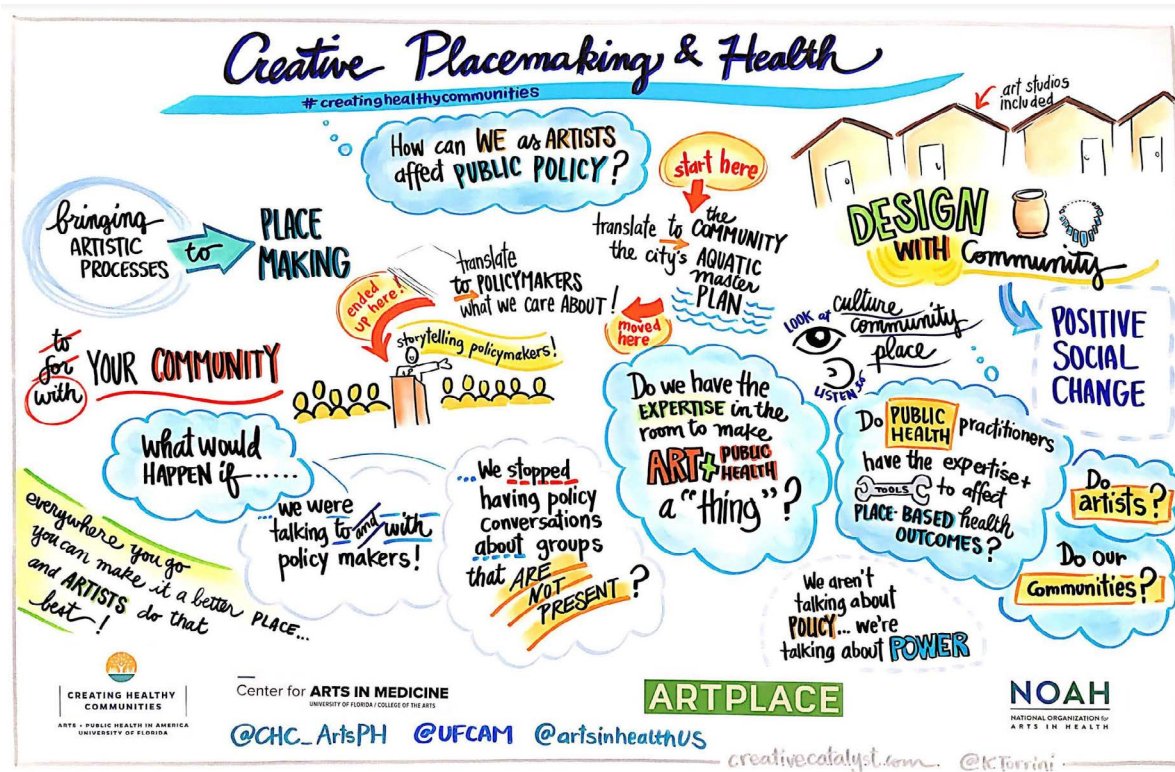 Creative Placemaking & Health
#creatinghealthycommunities
How can WE as ARTISTS
affect PUBLIC POLICY?
bringing
ARTISTIC
PROCESSES
to
PLACE
MAKING
to
for
with
YOUR COMMUNITY
start here
translate to the
COMMUNITY
the city's AQUATIC
master
PLAN
moved
here
translate
to POLICYMAKERS
what we care ABOUT!
ended
up here!
storytelling policymakers!
art studios
included
DESIGN
WITH Community
LOOK at
LISTEN to
culture
community
place
POSITIVE
SOCIAL
CHANGE
what would
HAPPEN if......
...we were
talking to and with
policy makers!
...We stopped
having policy
conversations
about groups
that ARE
NOT
PRESENT?
Do we have the
EXPERTISE in the
room to make
ART + PUBLIC
HEALTH
a "thing"?
Do PUBLIC
HEALTH practitioners
have the expertise +
TOOLS to affect
PLACE-BASED health
OUTCOMES?
Do
artists?
Do our
Communities?
We aren't
talking about
POLICY... we're
talking about POWER
everywhere you go
you can make it a better PLACE...
and ARTISTS do that
best!
CREATING HEALTHY
COMMUNITIES
ARTS + PUBLIC HEALTH IN AMERICA
UNIVERSITY OF FLORIDA
Center for ARTS IN MEDICINE
UNIVERSITY OF FLORIDA / COLLEGE OF THE ARTS
ARTPLACE
NOAH
NATIONAL ORGANIZATION for
ARTS IN HEALTH
@CHC_ArtsPH @UFCAM @artsinhealthUS
creativecatalyst.com @KTorrini